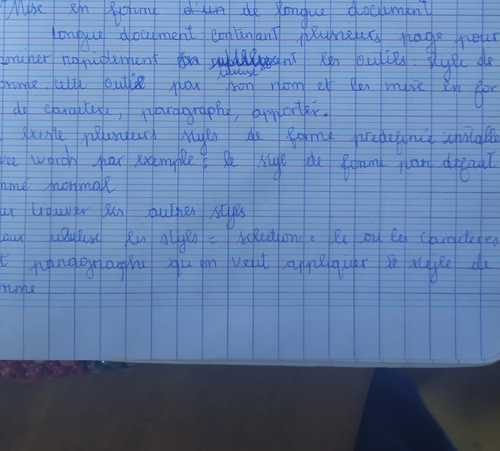 Mise en forme de longue document
longue document continant plusieurs page pour
miner rapidement les outils. Style de
orme. cette outil par son nom et les mise en for
de caractere, paragraphe, apporter.
existe plusieurs styls de forme predefinie installe
words par exemple : le styl de forme par defaut
mé normal
trouver les autres styls
les styls = selection = le ou les caracteres
paragraphe qu'on veut appliquer le style de
orme